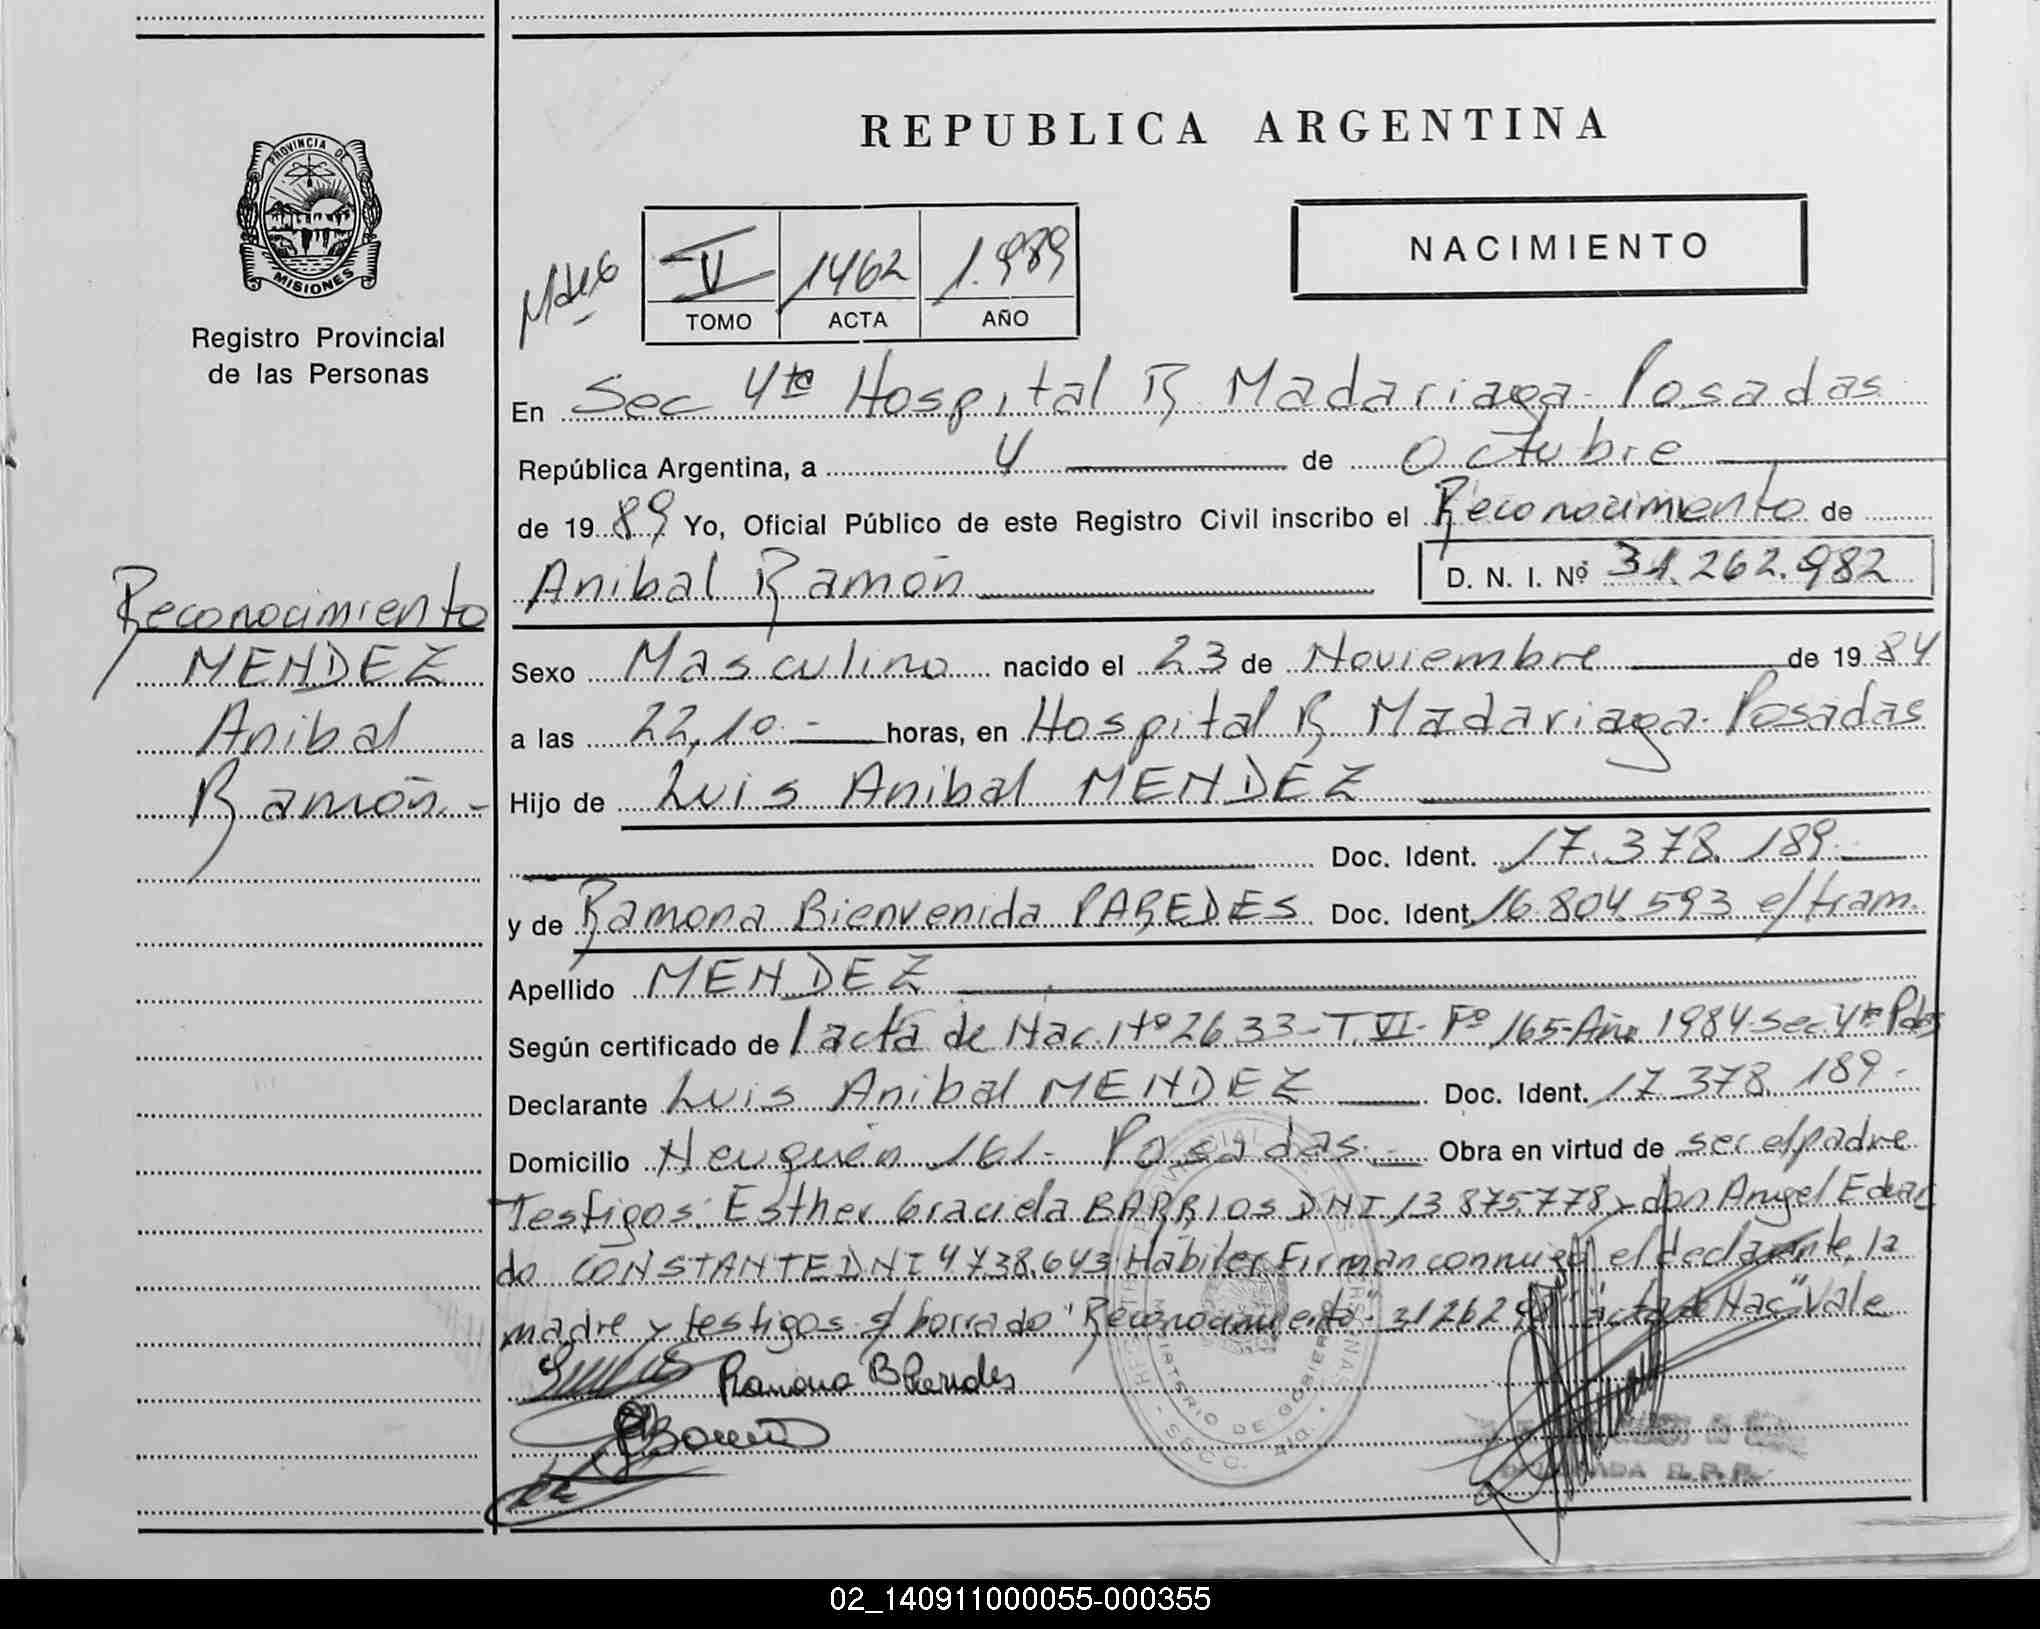 REPUBLICA ARGENTINA
PROVINCIA DE
MISIONES
Registro Provincial
de las Personas
V 1462 1.989
TOMO ACTA AÑO
NACIMIENTO
En Sec 4ta Hospital R Madariaga - Posadas
República Argentina, a 4 de Octubre
de 1989 Yo, Oficial Público de este Registro Civil inscribo el Reconocimiento de
Anibal Ramón D. N. I. Nº 31.262.982
Reconocimiento
MENDEZ
Anibal
Ramón.-
Sexo Masculino nacido el 23 de Noviembre de 1984
a las 22,10.- horas, en Hospital R Madariaga - Posadas
Hijo de Luis Anibal MENDEZ
Doc. Ident. 17.378.189.-
y de Ramona Bienvenida PAREDES Doc. Ident. 16.804.593 e/tram.
Apellido MENDEZ
Según certificado de 1 acta de Nac. Nº 2633 - T. VI - Fº 165 - Año 1984 - Sec 4ta Pdas
Declarante Luis Anibal MENDEZ Doc. Ident. 17.378.189.-
Domicilio Neuquén 161 - Posadas.- Obra en virtud de ser el padre
Testigos: Esther Graciela BARRIOS DNI 13.875.778 y don Angel Eduar
do CONSTANTE DNI 4.738.643 Hábiles Firman conmigo el declarante, la
madre y testigos s/ borrado "Reconocimiento" "acta de Nac" Vale
Ramona B Paredes
02_140911000055-000355